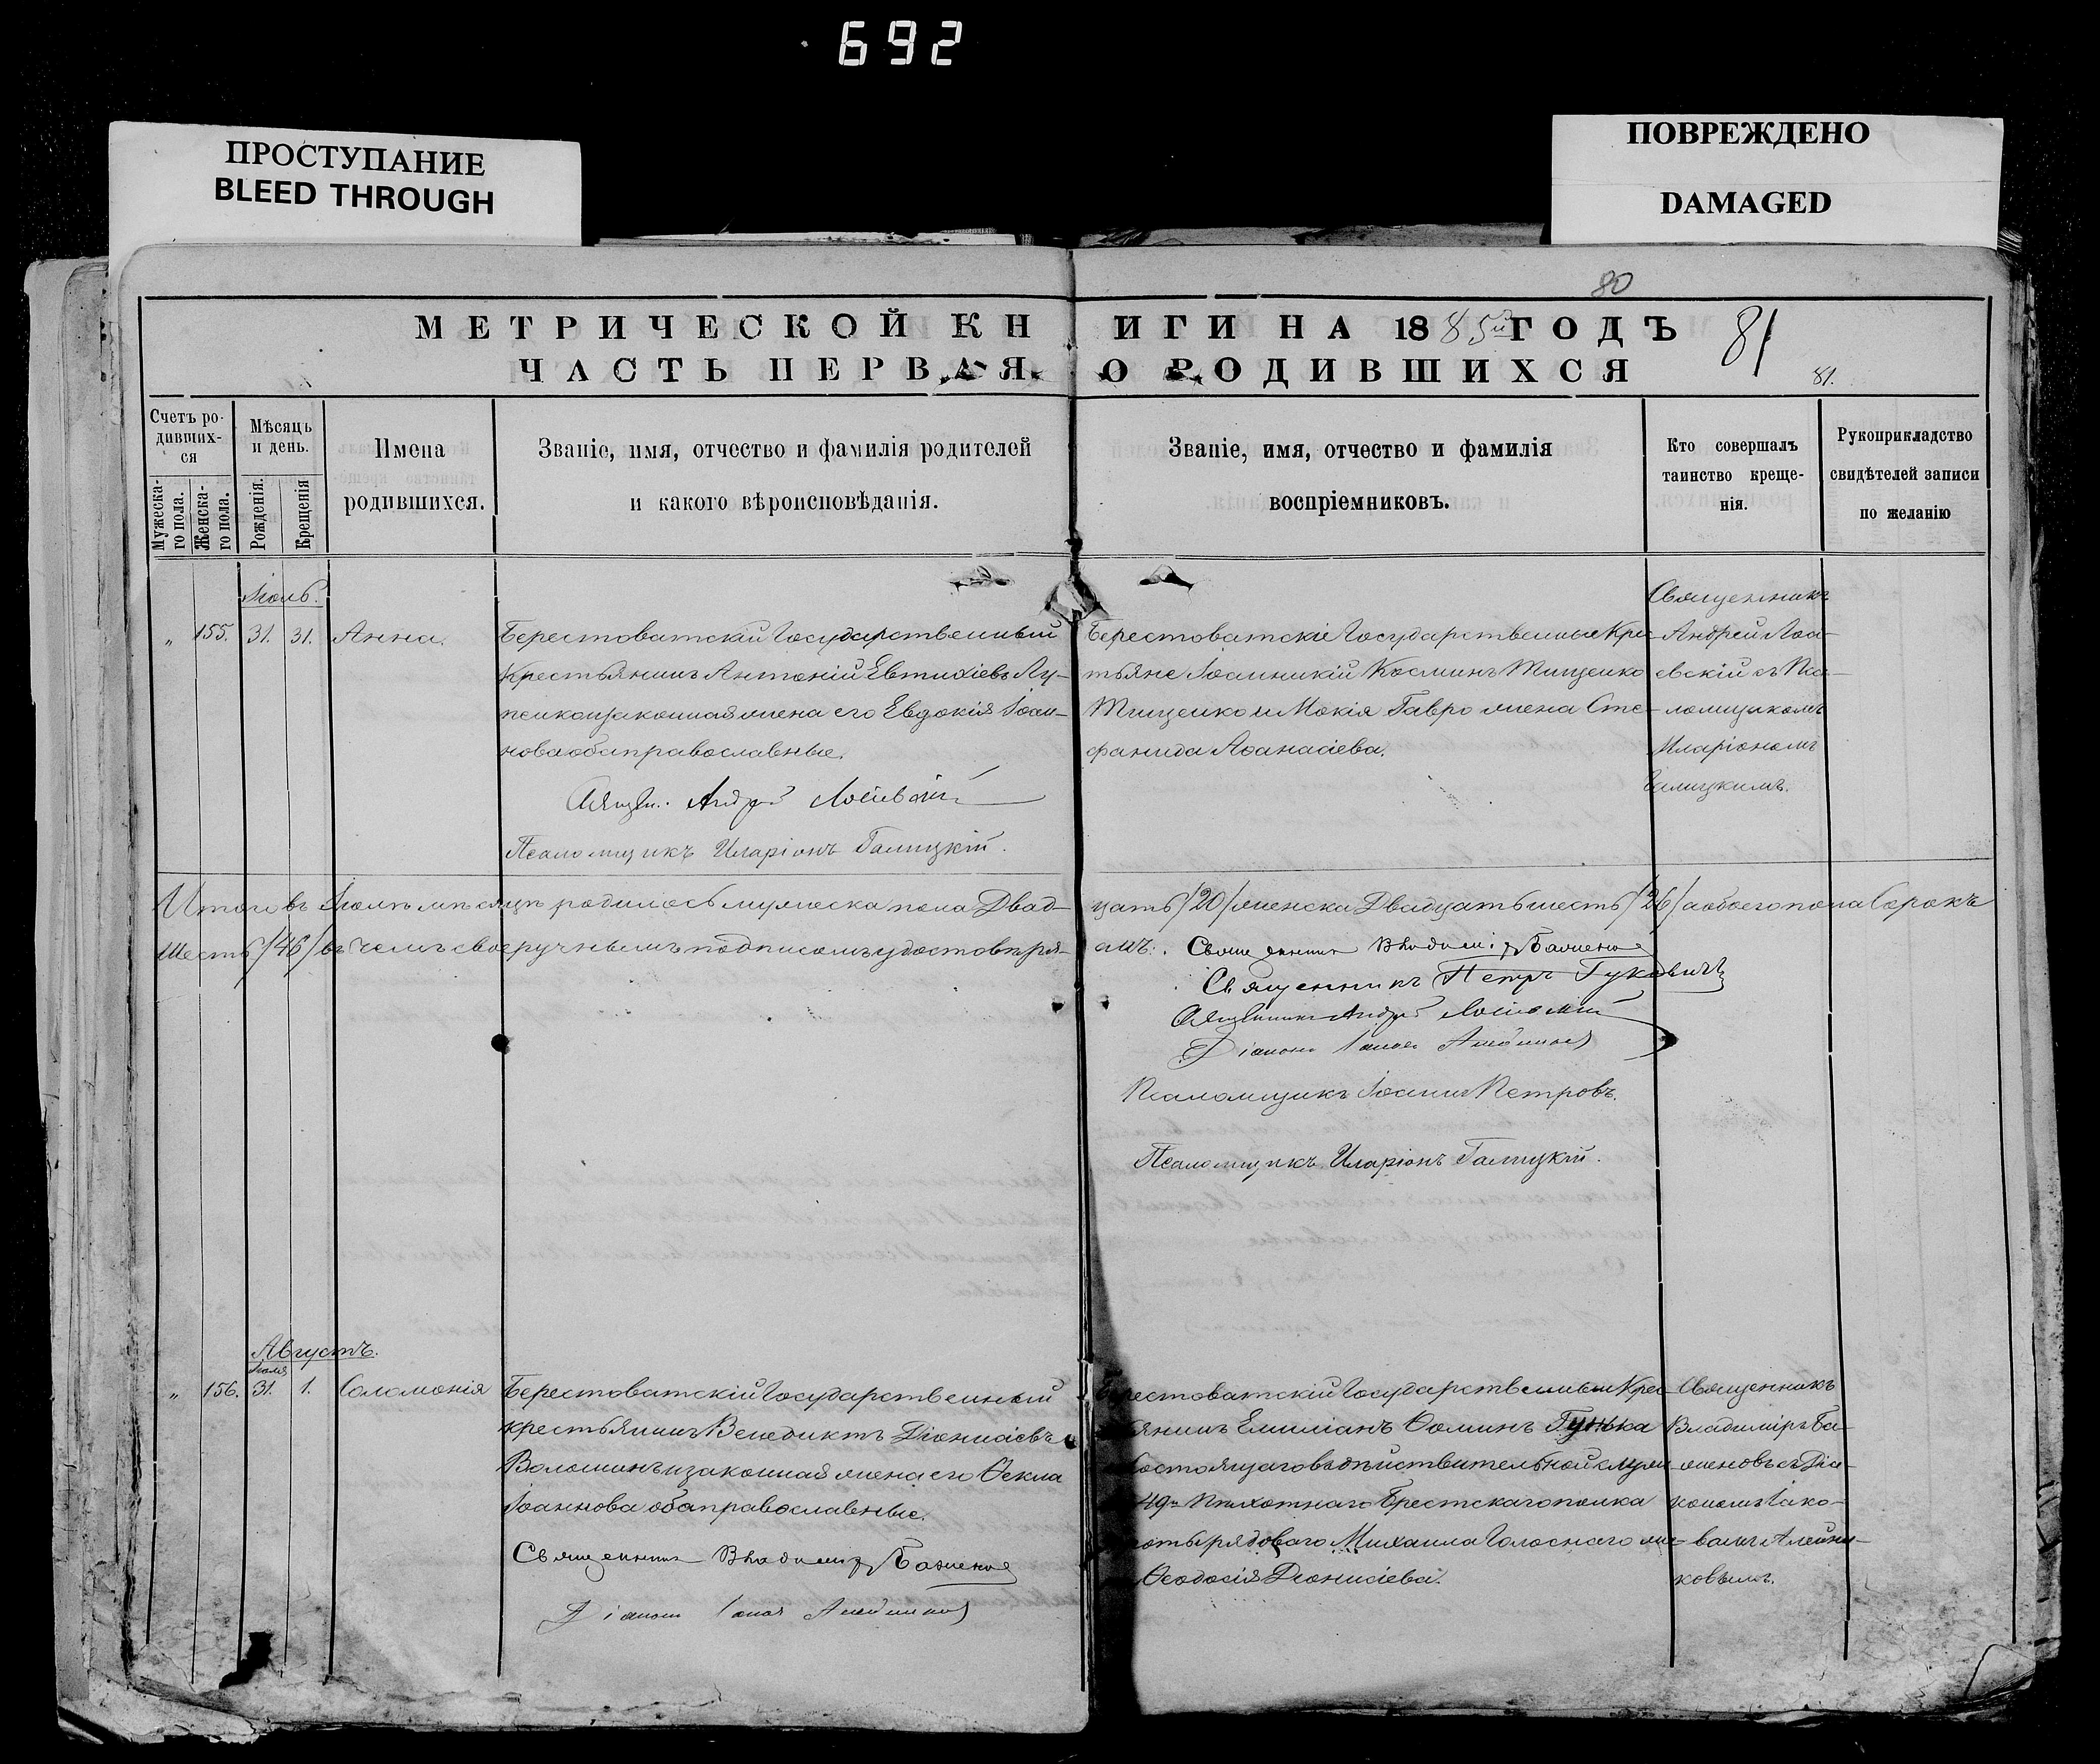 692
ПРОСТУПАНИЕ
BLEED THROUGH
ПОВРЕЖДЕНО
DAMAGED
80
МЕТРИЧЕСКОЙ КН
ИГИ НА 1885й ГОДЪ
81
ЧАСТЬ ПЕРВАЯ
О РОДИВШИХСЯ
81.
Счетъ ро-
дивших-
ся
Мужеска-
го пола.
Женска-
го пола.
Мѣсяцъ
и день.
Рожденія.
Крещенія
Имена
родившихся.
Званіе, имя, отчество и фамилія родителей
и какого вѣроисповѣданія.
Званіе, имя, отчество и фамилія
воспріемниковъ.
Кто совершалъ
таинство креще-
нія.
Рукоприкладство
свидѣтелей записи
по желанію
Іюль.
" 155. 31. 31. Анна.
Берестоватскій Государственный
Крестьянинъ Антоній Евтихіевъ Лу-
законная жена его Евдокія Іоан-
нова оба православные.
Священ. Андрей
Псаломщикъ Иларіонъ Галицкій.
Берестоватскіе Государственные Кре-
стьяне Іоанникій Косминъ Тищенко
Тищенко и Мокія Гавро жена Сте-
фанида Аѳанасіева.
Священникъ
Андрей Лос-
евскій съ Пса-
ломщикомъ
Иларіономъ
Галицкимъ.
Итого въ Іюлѣ мѣсяцѣ родилось мужеска пола Двад-
цать /20/ женска Двадцать шесть /26/ а обоего пола Сорокъ
шесть /46/ въ чемъ своеручнымъ подписомъ удостовѣря-
емъ.
Священникъ Владимиръ Баженов
Священникъ Петръ Гукевичъ
Священникъ Андрей
Діаконъ Іаковъ Алейников
Псаломщикъ Іоаннъ Петровъ.
Псаломщикъ Иларіонъ Галицкій.
Августъ.
Іюля
" 156. 31. 1. Соломонія
Берестоватскій Государственный
крестьянинъ Венедиктъ Діонисіевъ
Волошинъ и законная жена его Ѳекла
Іоаннова оба православные.
Священникъ Владимиръ Баженов
Діаконъ Іаковъ Алейников
Берестоватскій Государственный Крес-
янинъ Емиліанъ Ѳоминъ Гунька
состоящаго въ дѣйствительной служ
49го Пѣхотнаго Брестскаго полка
рядоваго Михаила Голоснаго же-
Ѳеодосія Діонисіева.
Священникъ
Владиміръ Ба-
женовъ съ Діа-
кономъ Іако-
вомъ Алейни-
ковымъ.